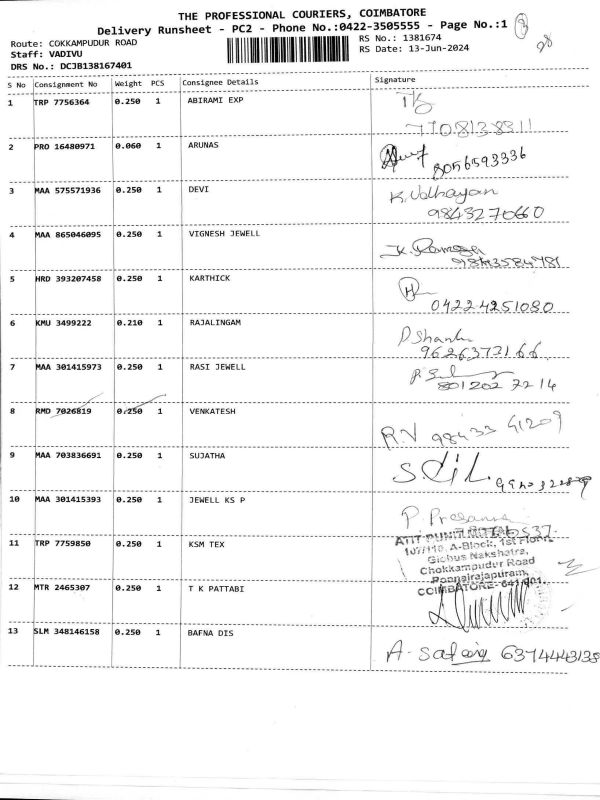 THE PROFESSIONAL COURIERS, COIMBATORE
Delivery Runsheet - PC2 - Phone No.:0422-3505555 - Page No.:1
Route: COKKAMPUDUR ROAD
RS No.: 1381674
Staff: VADIVU
RS Date: 13-Jun-2024
DRS No.: DCJB138167401
S No Consignment No Weight PCS Consignee Details Signature
1 TRP 7756364 0.250 1 ABIRAMI EXP
2 PRO 16480971 0.060 1 ARUNAS
8056593336
3 MAA 575571936 0.250 1 DEVI
K. Udhayan
9843270660
4 MAA 865046095 0.250 1 VIGNESH JEWELL
5 HRD 393207458 0.250 1 KARTHICK
04224251080
6 KMU 3499222 0.210 1 RAJALINGAM
9626372166
7 MAA 301415973 0.250 1 RASI JEWELL
8012022214
8 RMD 7026819 0.250 1 VENKATESH
R.V 98433 41209
9 MAA 703836691 0.250 1 SUJATHA
10 MAA 301415393 0.250 1 JEWELL KS P
11 TRP 7759850 0.250 1 KSM TEX
107/110, A-Block, 1st Floor,
Globus Nakshatra,
Chokkampudur Road
Ponnairajapuram,
COIMBATORE-641001.
12 MTR 2465307 0.250 1 T K PATTABI
13 SLM 348146158 0.250 1 BAFNA DIS
6374443138